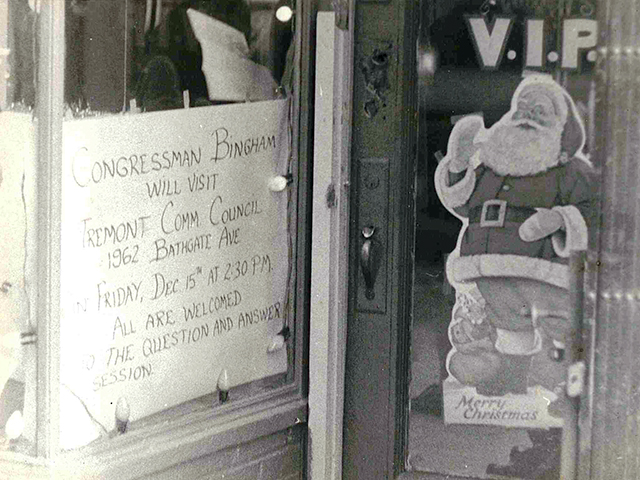 CONGRESSMAN BINGHAM
WILL VISIT
TREMONT COMM COUNCIL
1962 BATHGATE AVE
ON FRIDAY, DEC 15TH AT 2:30 P.M.
ALL ARE WELCOMED
TO THE QUESTION AND ANSWER
SESSION.
V.I.P.
Merry
Christmas